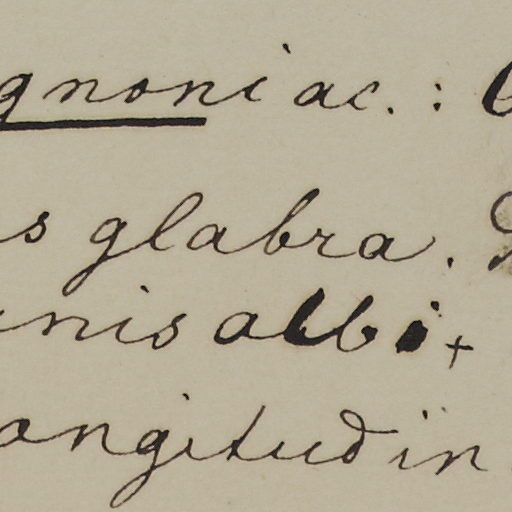 gnoniac. :
s glabra.
nis albi+
ongitudin